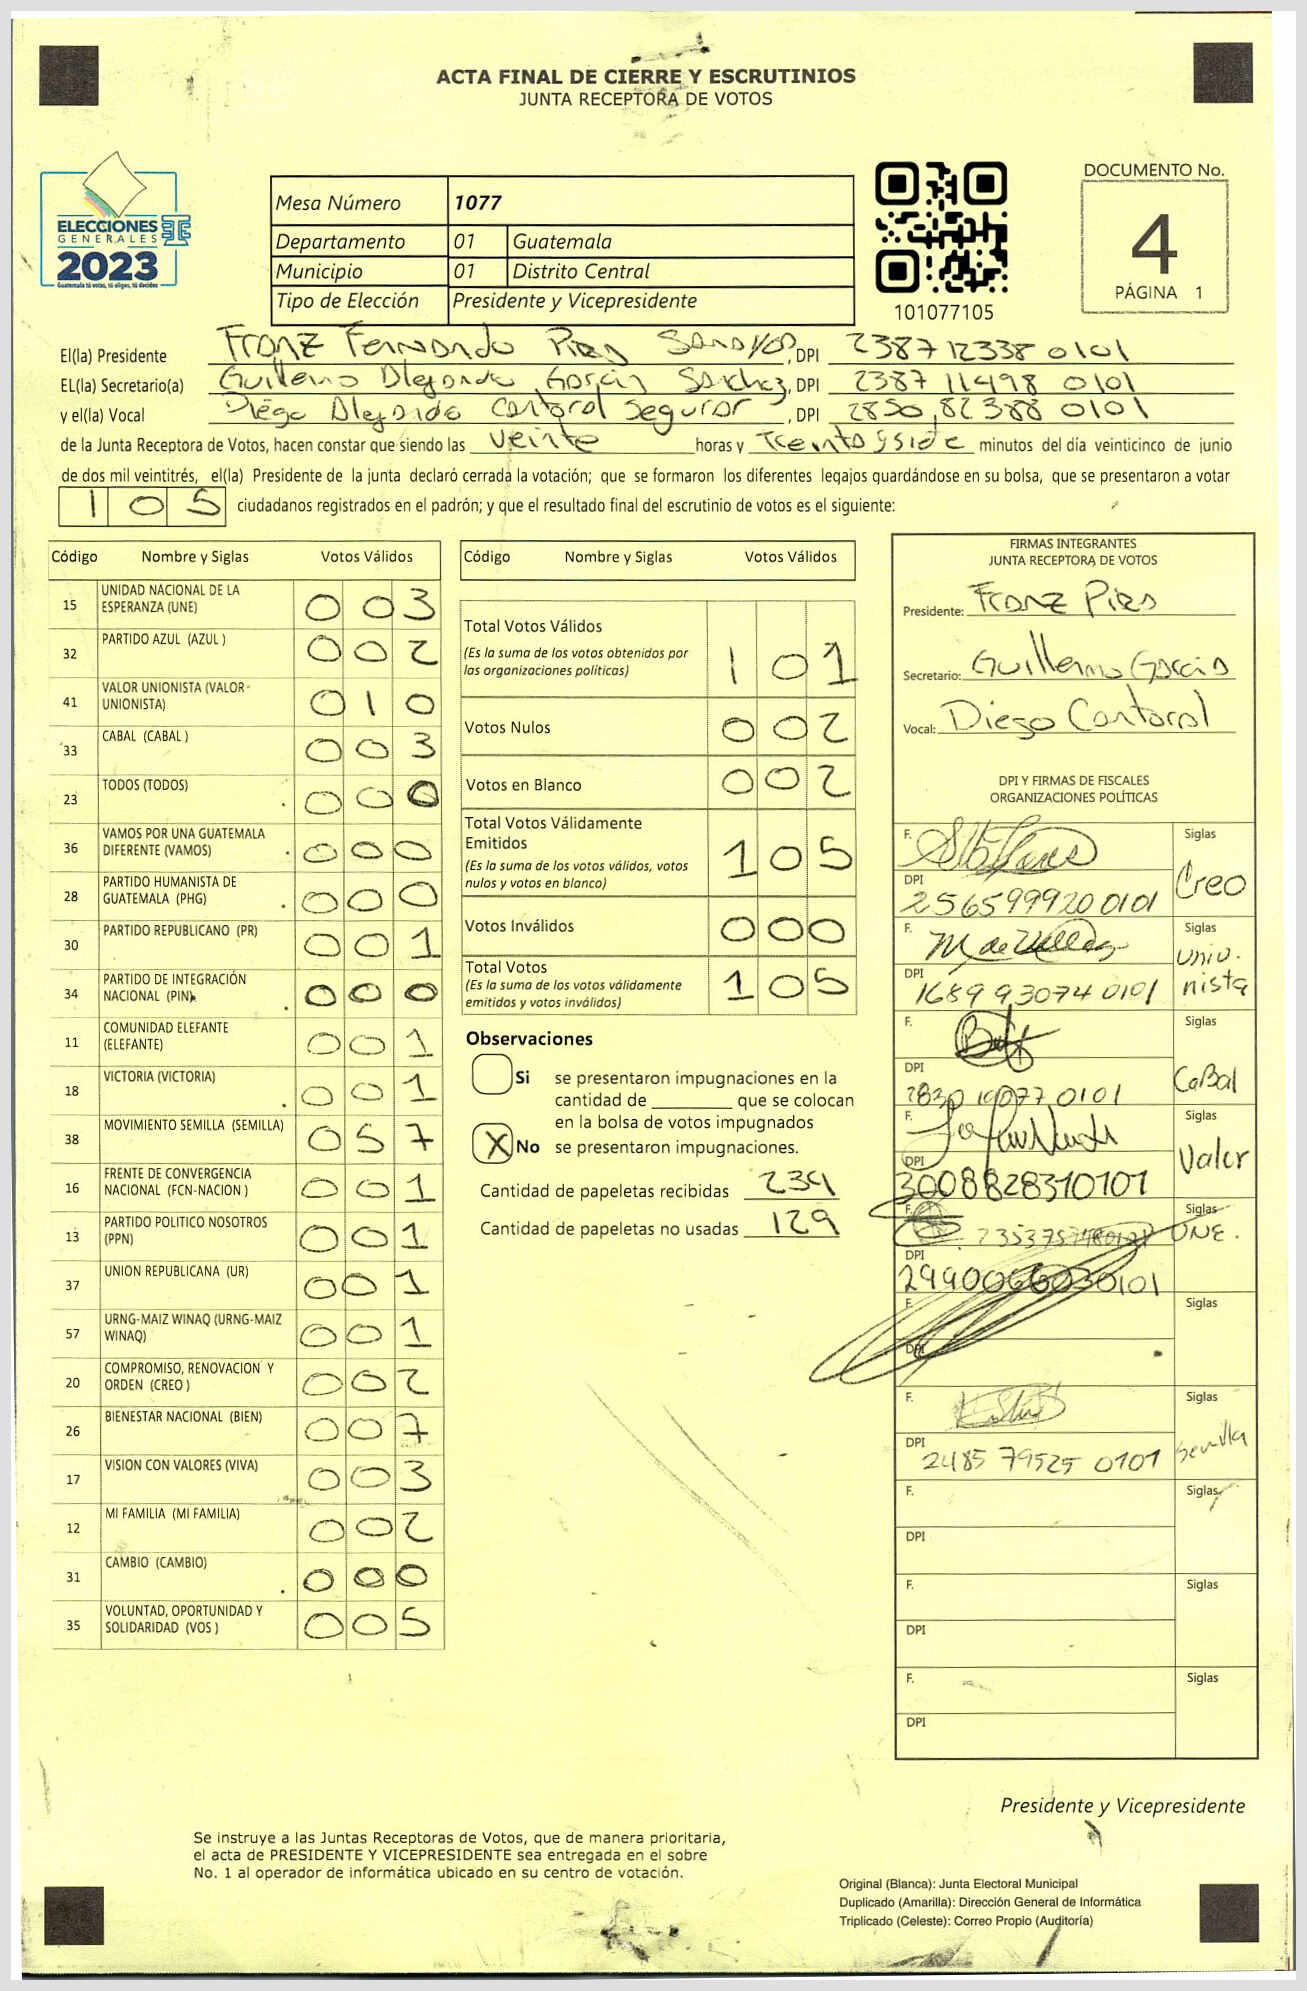 ACTA FINAL DE CIERRE Y ESCRUTINIOS
JUNTA RECEPTORA DE VOTOS
ELECCIONES
GENERALES
2023
Guatemala tú votas, tú eliges, tú decides
Mesa Número 1077
Departamento 01 Guatemala
Municipio 01 Distrito Central
Tipo de Elección Presidente y Vicepresidente
101077105
DOCUMENTO No.
4
PÁGINA 1
El(la) Presidente Franz Fernando Pires, DPI 2387 12338 0101
EL(la) Secretario(a) Guillermo Alejandro García Sánchez, DPI 2387 11498 0101
y el(la) Vocal Diego Alejandro Cantoral Segurar, DPI 2850 82388 0101
de la Junta Receptora de Votos, hacen constar que siendo las veinte horas y Treinta y siete minutos del día veinticinco de junio
de dos mil veintitrés, el(la) Presidente de la junta declaró cerrada la votación; que se formaron los diferentes legajos guardándose en su bolsa, que se presentaron a votar
1 0 5 ciudadanos registrados en el padrón; y que el resultado final del escrutinio de votos es el siguiente:
Código Nombre y Siglas Votos Válidos
15 UNIDAD NACIONAL DE LA ESPERANZA (UNE) 0 0 3
32 PARTIDO AZUL (AZUL ) 0 0 2
41 VALOR UNIONISTA (VALOR-UNIONISTA) 0 1 0
33 CABAL (CABAL ) 0 0 3
23 TODOS (TODOS) 0 0 0
36 VAMOS POR UNA GUATEMALA DIFERENTE (VAMOS) 0 0 0
28 PARTIDO HUMANISTA DE GUATEMALA (PHG) 0 0 0
30 PARTIDO REPUBLICANO (PR) 0 0 1
34 PARTIDO DE INTEGRACIÓN NACIONAL (PIN) 0 0 0
11 COMUNIDAD ELEFANTE (ELEFANTE) 0 0 1
18 VICTORIA (VICTORIA) 0 0 1
38 MOVIMIENTO SEMILLA (SEMILLA) 0 5 7
16 FRENTE DE CONVERGENCIA NACIONAL (FCN-NACION ) 0 0 1
13 PARTIDO POLITICO NOSOTROS (PPN) 0 0 1
37 UNION REPUBLICANA (UR) 0 0 1
57 URNG-MAIZ WINAQ (URNG-MAIZ WINAQ) 0 0 1
20 COMPROMISO, RENOVACION Y ORDEN (CREO ) 0 0 2
26 BIENESTAR NACIONAL (BIEN) 0 0 7
17 VISION CON VALORES (VIVA) 0 0 3
12 MI FAMILIA (MI FAMILIA) 0 0 2
31 CAMBIO (CAMBIO) 0 0 0
35 VOLUNTAD, OPORTUNIDAD Y SOLIDARIDAD (VOS ) 0 0 5
Código Nombre y Siglas Votos Válidos
Total Votos Válidos 1 0 1
(Es la suma de los votos obtenidos por
las organizaciones políticas)
Votos Nulos 0 0 2
Votos en Blanco 0 0 2
Total Votos Válidamente
Emitidos 1 0 5
(Es la suma de los votos válidos, votos
nulos y votos en blanco)
Votos Inválidos 0 0 0
Total Votos 1 0 5
(Es la suma de los votos válidamente
emitidos y votos inválidos)
Observaciones
Si se presentaron impugnaciones en la
cantidad de que se colocan
en la bolsa de votos impugnados
X No se presentaron impugnaciones.
Cantidad de papeletas recibidas 234
Cantidad de papeletas no usadas 129
FIRMAS INTEGRANTES
JUNTA RECEPTORA DE VOTOS
Presidente: Franz Pires
Secretario: Guillermo García
Vocal: Diego Cantoral
DPI Y FIRMAS DE FISCALES
ORGANIZACIONES POLÍTICAS
F. Siglas Creo
DPI 256599920 0101
F. Siglas Unionista
DPI 1689 93074 0101
F. Siglas CaBal
DPI 2830 10077 0101
F. Siglas Valor
DPI 3008828310101
F. Siglas UNE.
DPI 2990066030101
F. Siglas
DPI
F. Siglas Semilla
DPI 2485 79525 0101
F. Siglas
DPI
F. Siglas
DPI
F. Siglas
DPI
Presidente y Vicepresidente
Se instruye a las Juntas Receptoras de Votos, que de manera prioritaria,
el acta de PRESIDENTE Y VICEPRESIDENTE sea entregada en el sobre
No. 1 al operador de informática ubicado en su centro de votación.
Original (Blanca): Junta Electoral Municipal
Duplicado (Amarilla): Dirección General de Informática
Triplicado (Celeste): Correo Propio (Auditoría)